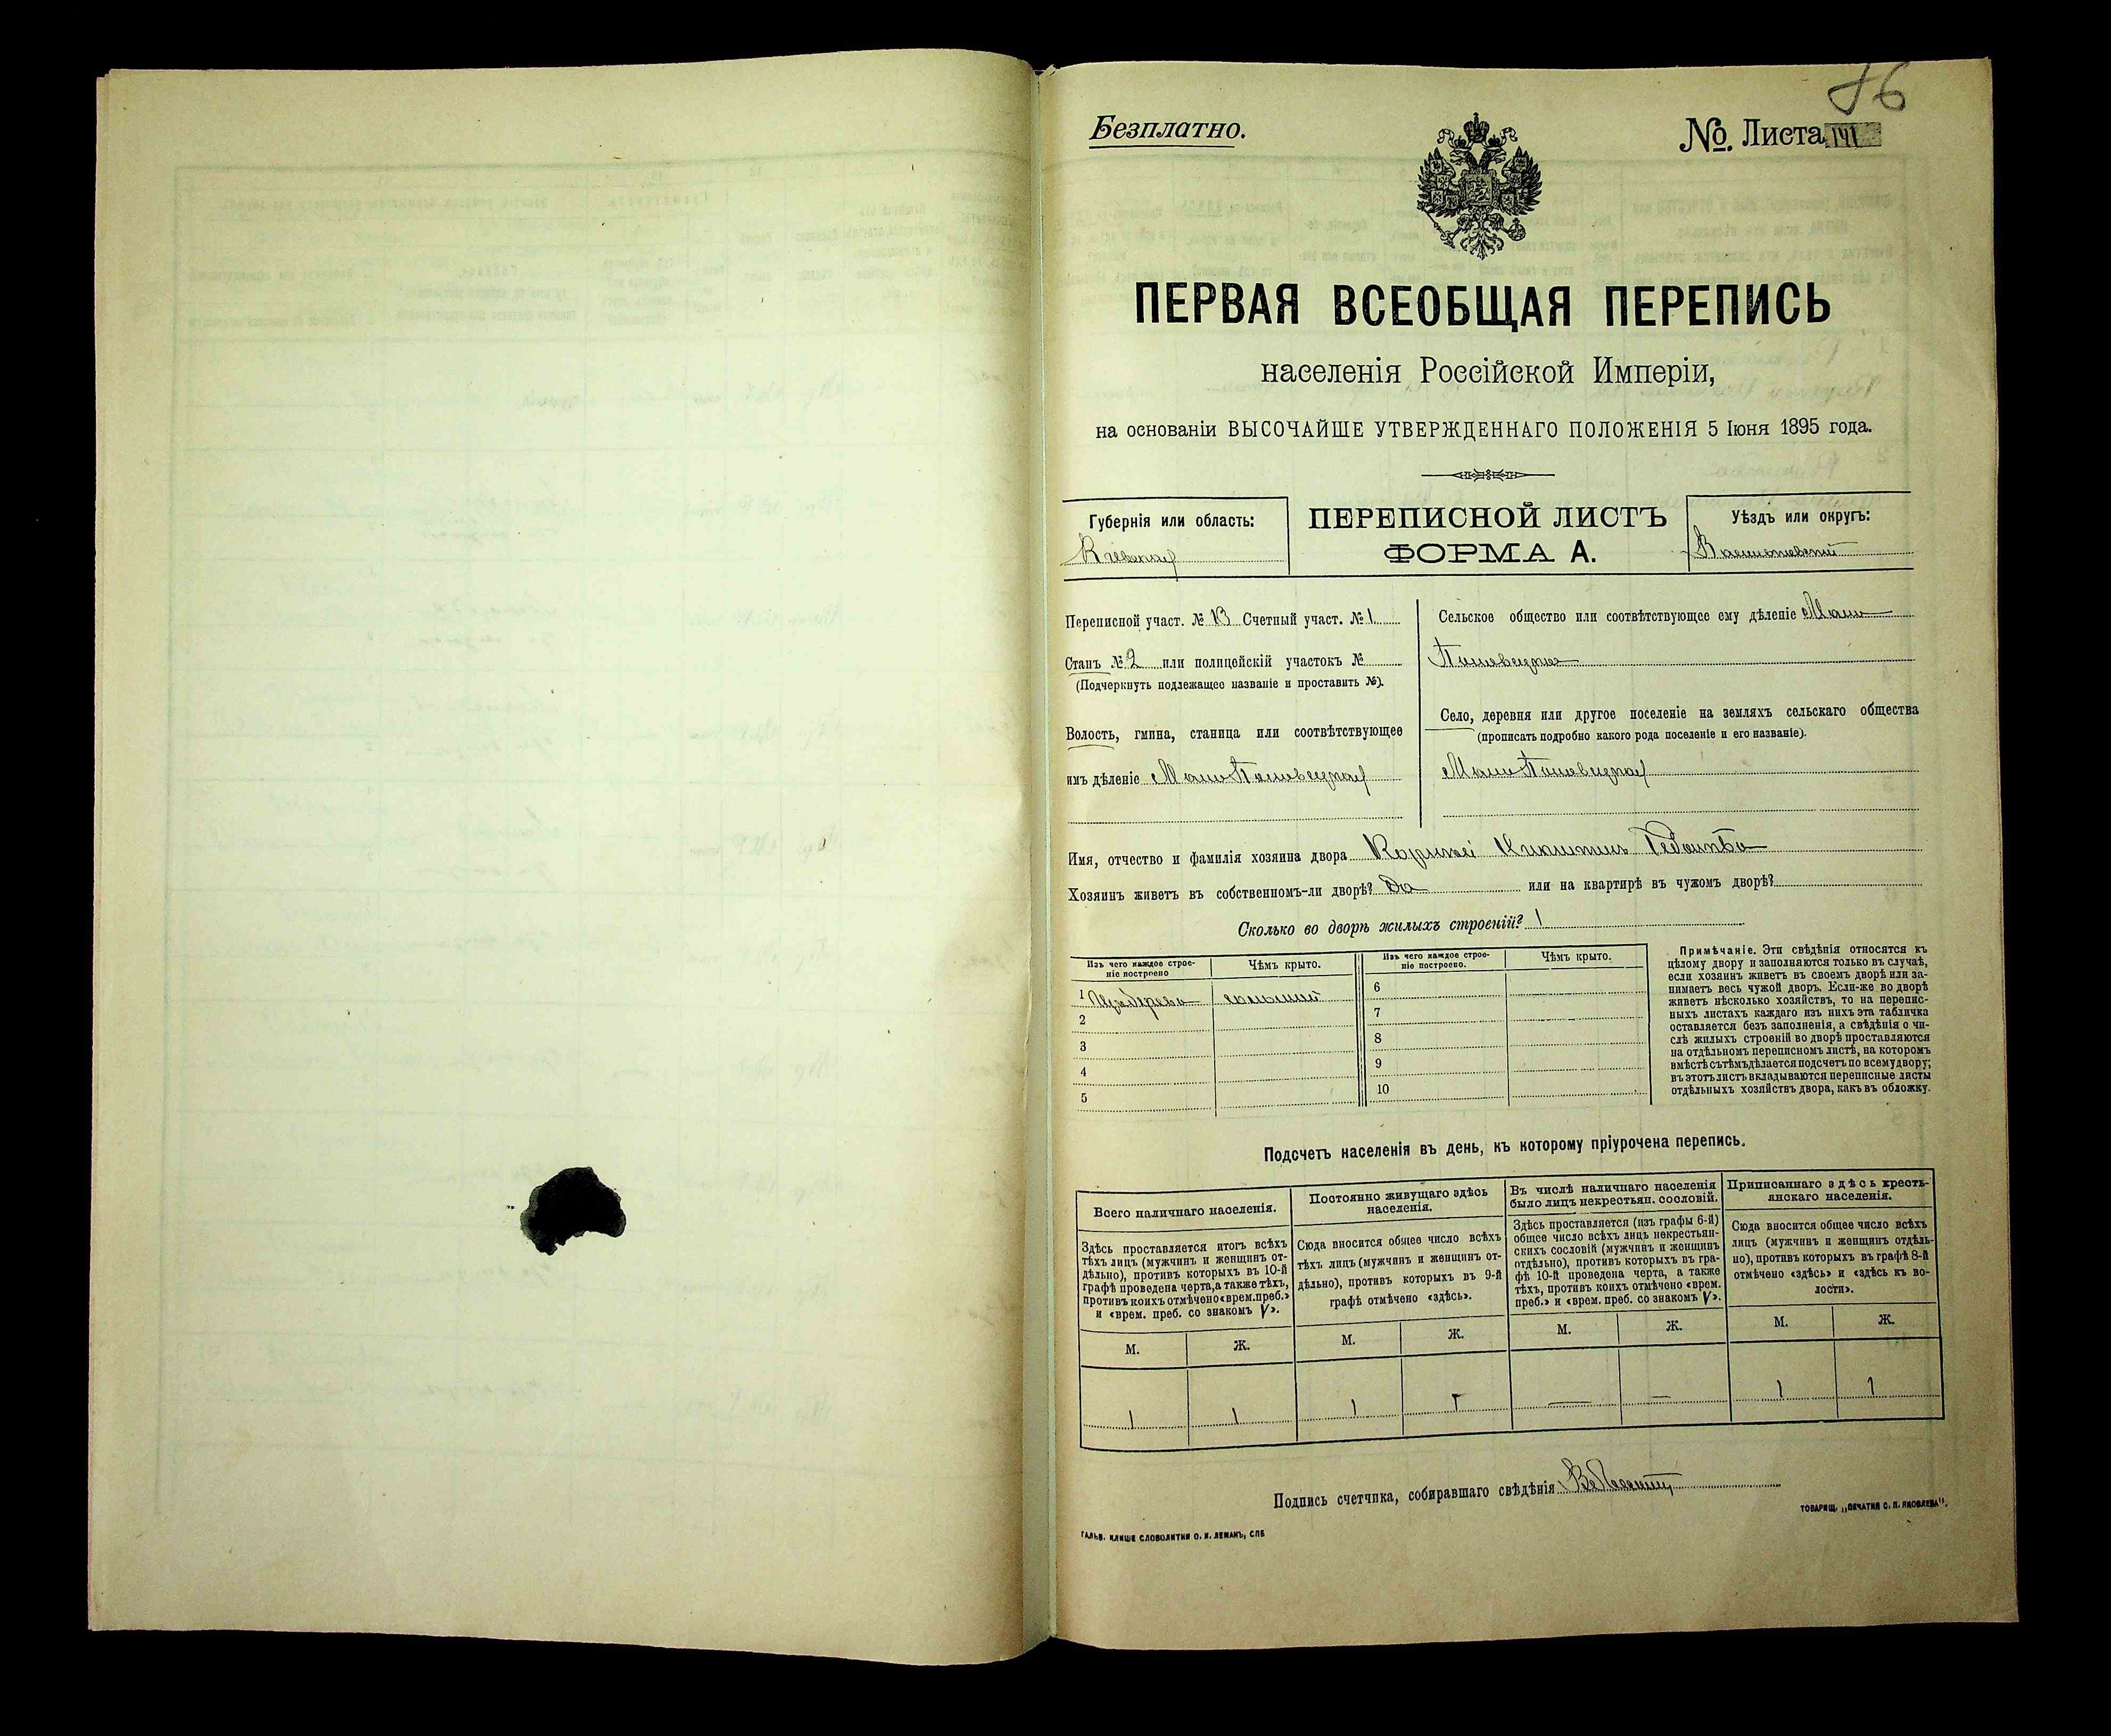 76
Безплатно.
№. Листа 141
ПЕРВАЯ ВСЕОБЩАЯ ПЕРЕПИСЬ
населенія Россійской Имперіи,
на основаніи ВЫСОЧАЙШЕ УТВЕРЖДЕННАГО ПОЛОЖЕНІЯ 5 Іюня 1895 года.
Губернія или область:
Кіевская
ПЕРЕПИСНОЙ ЛИСТЪ
ФОРМА А.
Уѣздъ или округъ:
Васильковскій
Переписной участ. № 13 Счетный участ. № 1
Станъ № 2 или полицейскій участокъ №
(Подчеркнуть подлежащее названіе и проставить №).
Волость, гмина, станица или соотвѣтствующее
имъ дѣленіе Мало Половецкая
Сельское общество или соотвѣтствующее ему дѣленіе Мало
Половецкое
Село, деревня или другое поселеніе на земляхъ сельскаго общества
(прописать подробно какого рода поселеніе и его названіе).
Мало Половецкая
Имя, отчество и фамилія хозяина двора
Хозяинъ живетъ въ собственномъ-ли дворѣ? Да или на квартирѣ въ чужомъ дворѣ?
Сколько во дворѣ жилыхъ строеній? 1
Изъ чего каждое строе-
ніе построено
Чѣмъ крыто.
Изъ чего каждое строе-
ніе построено.
Чѣмъ крыто.
1 Изъ дерева соломой
2
3
4
5
6
7
8
9
10
Примѣчаніе. Эти свѣдѣнія относятся къ
цѣлому двору и заполняются только въ случаѣ,
если хозяинъ живетъ въ своемъ дворѣ или за-
нимаетъ весь чужой дворъ. Если-же во дворѣ
живетъ нѣсколько хозяйствъ, то на перепис-
ныхъ листахъ каждаго изъ нихъ эта табличка
оставляется безъ заполненія, а свѣдѣнія о чи-
слѣ жилыхъ строеній во дворѣ проставляются
на отдѣльномъ переписномъ листѣ, на которомъ
вмѣстѣ съ тѣмъ дѣлается подсчетъ по всему двору;
въ этотъ листъ вкладываются переписные листы
отдѣльныхъ хозяйствъ двора, какъ въ обложку.
Подсчетъ населенія въ день, къ которому пріурочена перепись.
Всего наличнаго населенія.
Здѣсь проставляется итогъ всѣхъ
тѣхъ лицъ (мужчинъ и женщинъ от-
дѣльно), противъ которыхъ въ 10-й
графѣ проведена черта, а также тѣхъ,
противъ коихъ отмѣчено «врем. преб.»
и «врем. преб. со знакомъ V».
Постоянно живущаго здѣсь
населенія.
Сюда вносится общее число всѣхъ
тѣхъ лицъ (мужчинъ и женщинъ от-
дѣльно), противъ которыхъ въ 9-й
графѣ отмѣчено «здѣсь».
Въ числѣ наличнаго населенія
было лицъ некрестьян. сословій.
Здѣсь проставляется (изъ графы 6-й)
общее число всѣхъ лицъ некрестьян-
скихъ сословій (мужчинъ и женщинъ
отдѣльно), противъ которыхъ въ гра-
фѣ 10-й проведена черта, а также
тѣхъ, противъ коихъ отмѣчено «врем.
преб.» и «врем. преб. со знакомъ V».
Приписаннаго здѣсь кресть-
янскаго населенія.
Сюда вносится общее число всѣхъ
лицъ (мужчинъ и женщинъ отдѣль-
но), противъ которыхъ въ графѣ 8-й
отмѣчено «здѣсь» и «здѣсь къ во-
лости».
М. Ж. М. Ж. М. Ж. М. Ж.
1 1 1 1 — — 1 1
Подпись счетчика, собиравшаго свѣдѣнія
ГАЛЬВ. КЛИШЕ СЛОВОЛИТНИ О. И. ЛЕМАНЪ, СПБ
ТОВАРИЩ. „ПЕЧАТНЯ С. П. ЯКОВЛЕВА".